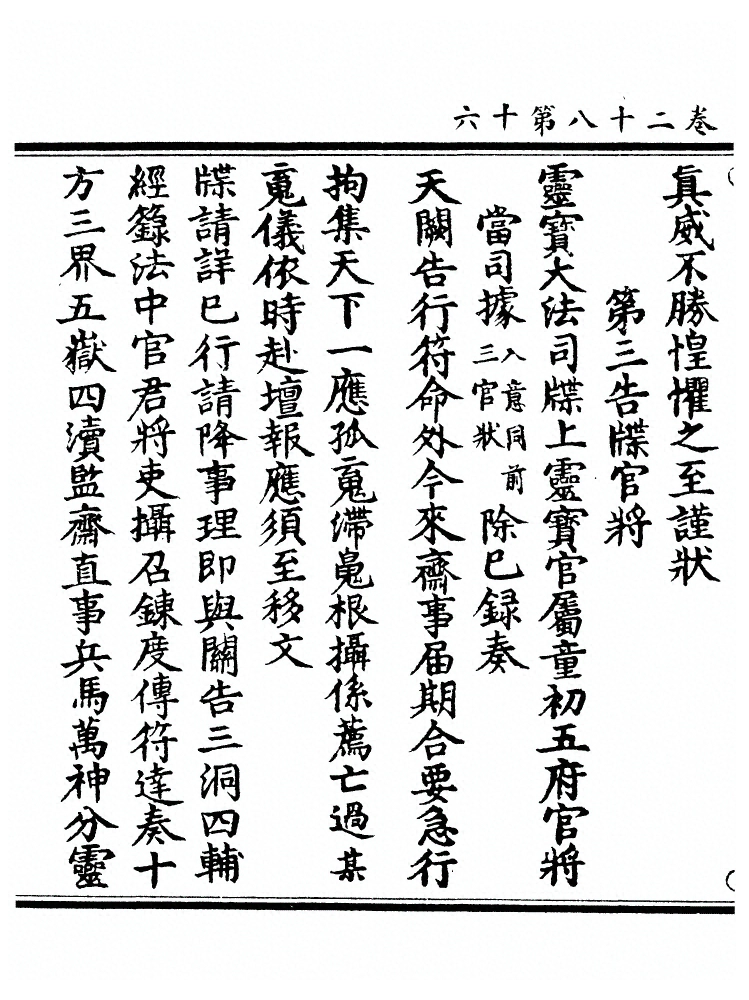 卷二十八第十六
眞威不勝惶懼之至謹狀
第三告牒官將
靈寶大法司牒上靈寶官屬童初五府官將
當司據入意同前三官狀除已録奏
天闕告行符命外今來齋事届期合要急行
拘集天下一應孤䰟滯魄根攝係薦亡過某
䰟儀依時赴壇報應須至移文
牒請詳已行請降事理即與關告三洞四輔
經籙法中官君將吏攝召鍊度傳符達奏十
方三界五嶽四瀆監齋直事兵馬萬神分靈